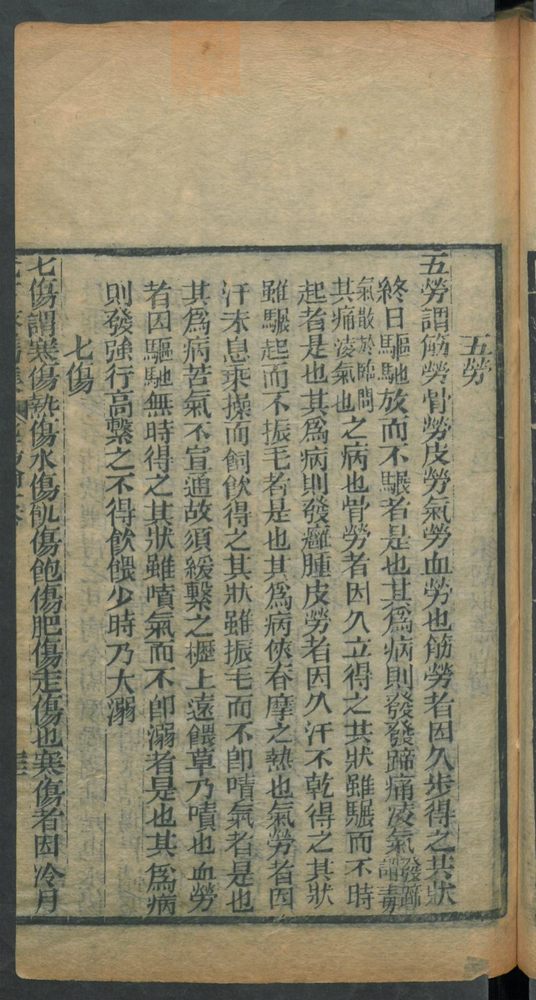 五勞
五勞謂筋勞骨勞皮勞氣勞血勞也筋勞者因久步得之其狀
終日驅馳放而不驟者是也其爲病則發發蹄痛凌氣發蹄謂毒
氣散於蹄間其痛凌氣也之病也骨勞者因久立得之其狀雖驟而不時
起者是也其爲病則發癰腫皮勞者因久汗不乾得之其狀
雖驟起而不振毛者是也其爲病俠脊摩之熱也氣勞者因
汗未息乘操而飼飲得之其狀雖振毛而不卽嘖氣者是也
其爲病苦氣不宣通故須緩繫之櫪上遠餵草乃嘖也血勞
者因驅馳無時得之其狀雖嘖氣而不卽溺者是也其爲病
則發强行高繫之不得飲餵少時乃大溺
七傷
七傷謂寒傷熱傷水傷飢傷飽傷肥傷走傷也寒傷者因冷月